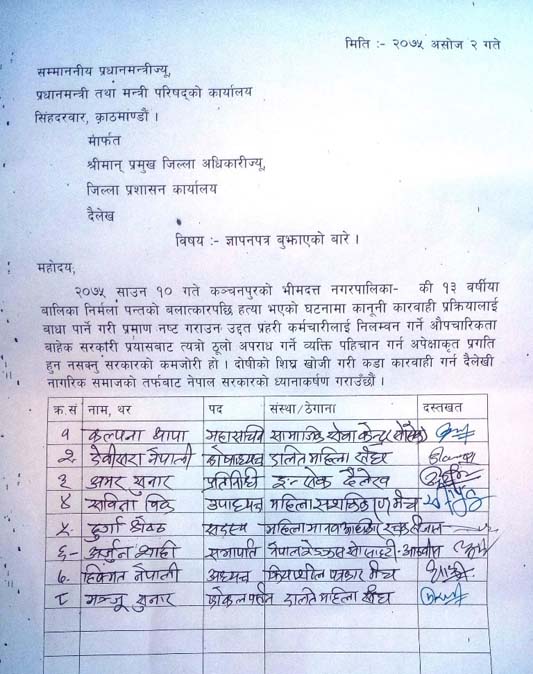 मिति :- २०७५ असोज २ गते
सम्माननीय प्रधानमन्त्रीज्यू,
प्रधानमन्त्री तथा मन्त्री परिषद्को कार्यालय
सिंहदरवार, काठमाण्डौं ।
मार्फत
श्रीमान् प्रमुख जिल्ला अधिकारीज्यू,
जिल्ला प्रशासन कार्यालय
दैलेख
विषय :- ज्ञापनपत्र बुझाएको बारे ।
महोदय,
२०७५ साउन १० गते कञ्चनपुरको भीमदत्त नगरपालिका- की १३ वर्षीया
बालिका निर्मला पन्तको बलात्कारपछि हत्या भएको घटनामा कानूनी कारवाही प्रक्रियालाई
बाधा पार्ने गरी प्रमाण नष्ट गराउन उद्दत प्रहरी कर्मचारीलाई निलम्वन गर्ने औपचारिकता
बाहेक सरकारी प्रयासबाट त्यत्रो ठूलो अपराध गर्ने व्यक्ति पहिचान गर्न अपेक्षाकृत प्रगति
हुन नसक्नु सरकारको कमजोरी हो । दोषीको शिघ्र खोजी गरी कडा कारवाही गर्न दैलेखी
नागरिक समाजको तर्फबाट नेपाल सरकारको ध्यानाकर्षण गराउँछौं ।
क्र.सं नाम, थर पद संस्था/ठेगाना दस्तखत
१ कल्पना थापा महासचिव सामाजिक सेवा केन्द्र
२. देवीसरा नेपाली कोषाध्यक्ष दलित महिला संघ
३ अमर सुनार प्रतिनिधि इन्सेक दैलेख
४ सविता वि.क उपाध्यक्ष महिला मंच
५. दुर्गा सदस्य महिला मानव अधिकार रक्षक
६- अर्जुन शाही सभापति नेपाल रेडक्रस सोसाइटी
७. नेपाली अध्यक्ष क्रियाशील पत्रकार मंच
८ मञ्जू सुनार दलित महिला संघ